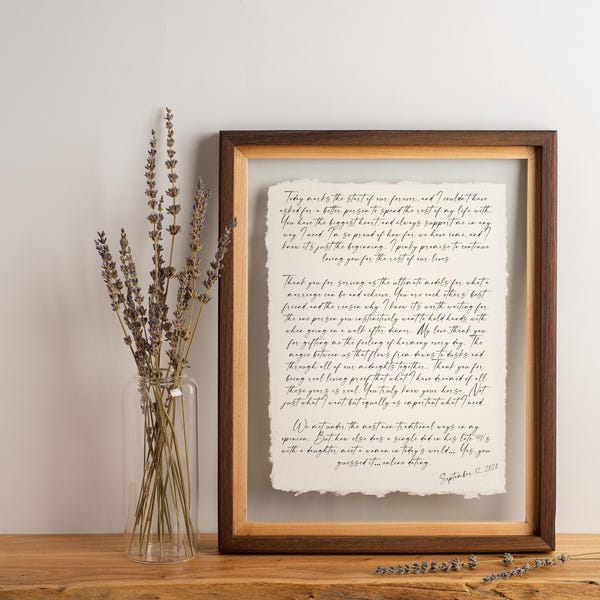 Today marks the start of our forever, and I couldn't have
asked for a better person to spend the rest of my life with.
You have the biggest heart and always support me in any
way I need. I'm so proud of how far we have come, and I
know it's just the beginning. I pinky promise to continue
loving you for the rest of our lives
Thank you for serving as the ultimate models for what a
marriage can be and achieve. You are each others' best
friend, and the reason why I knew it's worth waiting for
the one person you instinctively want to hold hands with
when going on a walk after dinner. My love, thank you
for gifting me the feeling of harmony every day. The
magic between us that flows from dawns to dusks and
through all of our midnights together. Thank you for
being real living proof that what I have dreamed of all
these years is real. You truly know your horse. Not
just what I want, but equally as important what I need.
We met under the most non-traditional ways in my
opinion. But how else does a single dad in his late 40's
with a daughter meet a woman in today's world... Yes, you
guessed it... online dating.
September 12, 2020